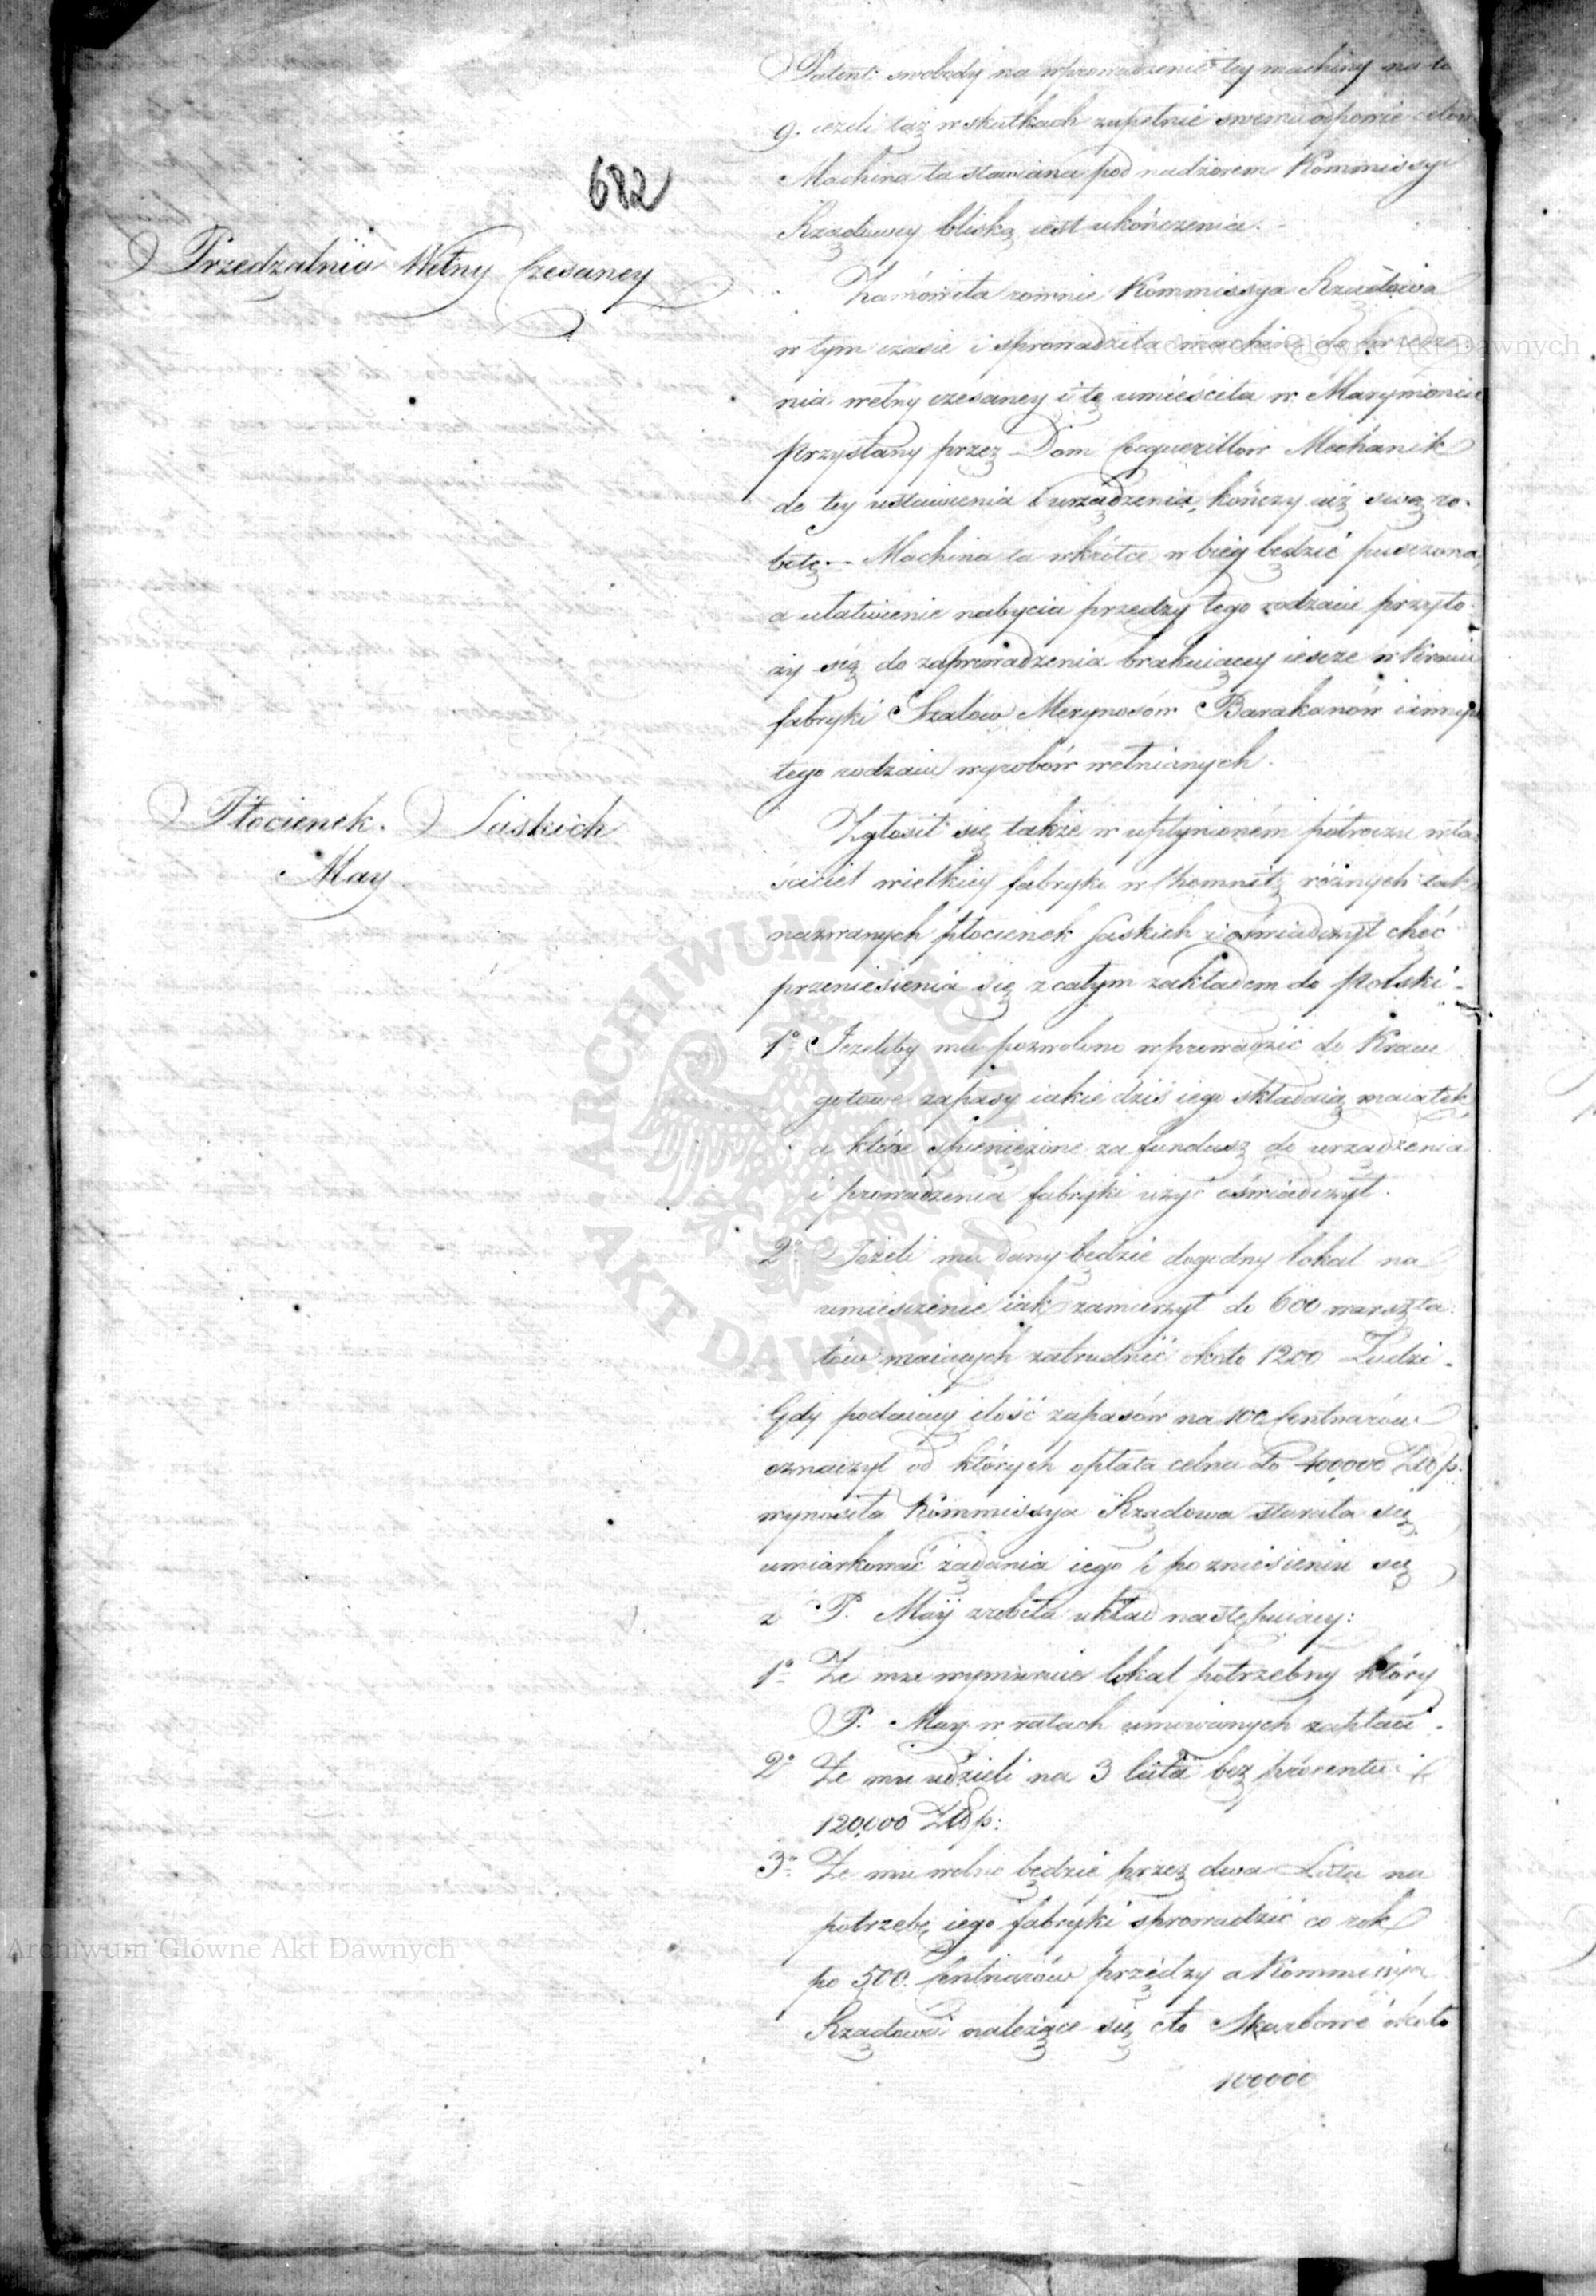 682
Patent swobody na wprowadzenie tey machiny na la
9. ieżeli taż w skutkach zupełnie swemu odpowie celowi
Machina ta stawiana pod nadzorem Kommissyi
Rządowey bliską iest ukończenia.
Przędzalnia Wełny Czesaney
Zamówiła równie Kommissya Rządowa
w tym czasie i sprowadziła machinę do przędze
nia wełny czesaney i tę umieściła w Marymoncie
przysłany przez Dom Coquerillów Mechanik
do tey ustawienia i urządzenia, kończy iuż swą ro-
botę. — Machina ta wkrótce w bieg będzie puszczona,
a ułatwienie nabycia przędzy tego rodzaiu przyło-
ży się do zaprowadzenia brakuiącey ieszcze w Kraiu
fabryki Szalów, Merynosów Barakanów i innych
tego rodzaiu wyrobów wełnianych.
Płocienek Saskich
May
Zgłosił się także w upłynioném półroczu wła-
ściciel wielkiey fabryki w Chemnitz różnych tak
nazwanych płocienek Saskich i oświadczył chęć
przeniesienia się z całym zakładem do Polski.
1° Jeżeliby mu pozwolono wprowadzić do Kraiu
gotowe zapasy iakie dziś iego składaią maiątek
a które spieniężone za fundusz do urządzenia
i prowadzenia fabryki użyć oświadczył.
2° Jeżeli mu dany będzie dogodny lokal na
umieszczenie iak zamierzył do 600 warszta-
tów maiących zatrudnić około 1200 Ludzi.
Gdy podaiący ilość zapasów na 100 Centnarów
oznaczył od których opłata celna do 400,000 Złłp.
wynosiła Kommissya Rządowa starała się
umiarkować żądania iego i po zniesieniu się
z P. May zrobiła układ następuiący:
1° Że mu wymuruie lokal potrzebny który
P. May w ratach umówionych zapłaci.
2° Że mu udzieli na 3 lata bez procentu
120,000 Złłp:
3° Że mu wolno będzie przez dwa Lata na
potrzebę iego fabryki sprowadzić co rok
po 500. Centnarów przędzy a Kommissya
Rządowa należące się cło Skarbowe około
100000
Archiwum Główne Akt Dawnych
Archiwum Główne Akt Dawnych
ARCHIWUM GŁÓWNE AKT DAWNYCH